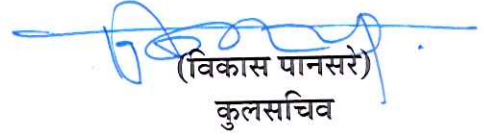 (विकास पानसरे)
कुलसचिव